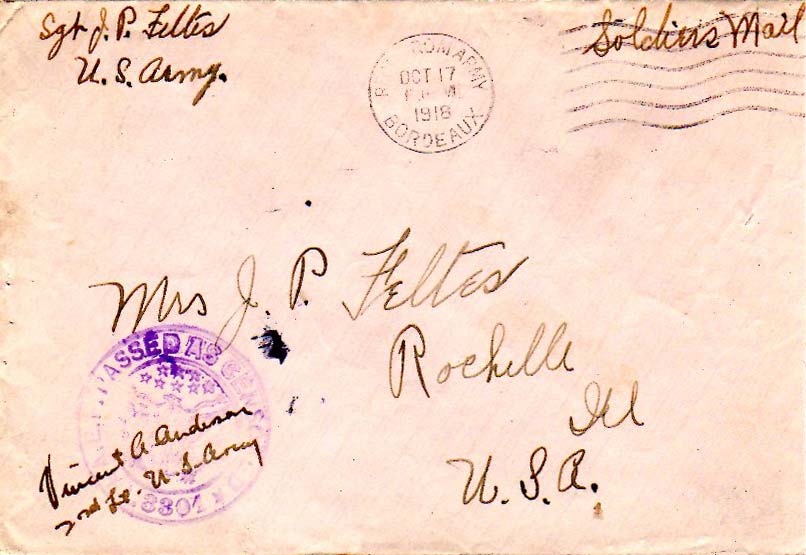 Sgt J. P. Feltes
U. S. Army.
ARMY
OCT 17
1918
BORDEAUX
Soldiers Mail
Mrs J. P. Feltes
Rochelle
Ill
U. S. A.
PASSED AS CENSORED
Vincent A. Anderson
2nd Lt. U. S. Army